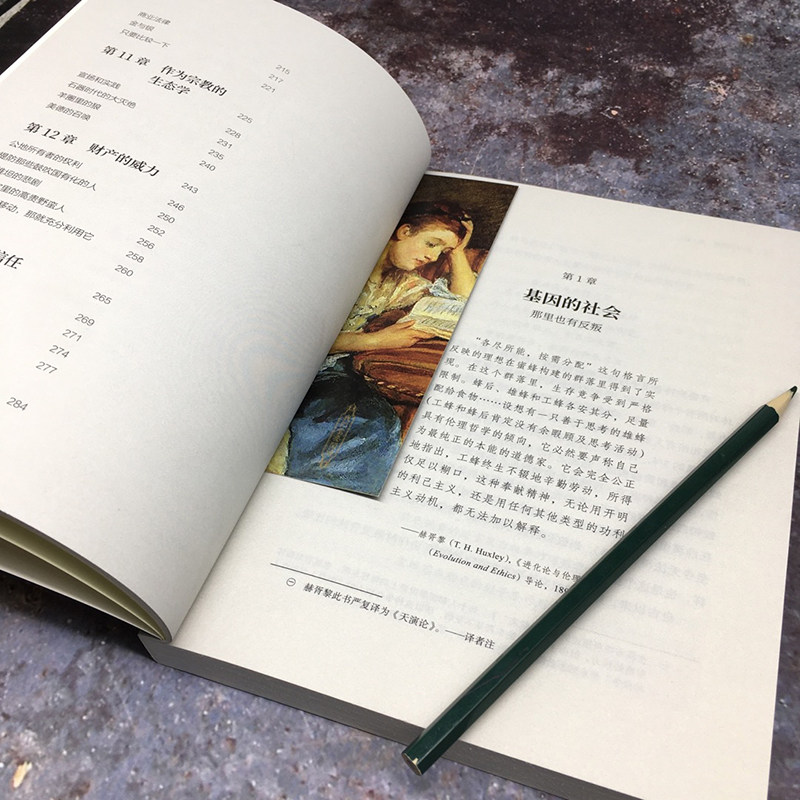 商业法律
金与银
只要比较一下
215
217
221
第11章 作为宗教的
生态学
225
宣扬和实践
228
石器时代的大灭绝
231
羊圈里的狼
235
美德的召唤
240
第12章 财产的威力
243
公地所有者的权利
246
提防那些鼓吹国有化的人
250
坦的悲剧
252
里的高贵野蛮人
256
移动，那就充分利用它
258
260
信任
265
269
271
274
277
284
第1章
基因的社会
那里也有反叛
“各尽所能，按需分配”这句格言所
反映的理想在蜜蜂构建的群落里得到了实
现。在这个群落里，生存竞争受到严格
限制。蜂后、雄蜂和工蜂各安其分，足量
配给食物……设想有一只善于思考的雄蜂
（工蜂和蜂后肯定没有余暇顾及思考活动）
具有伦理哲学的倾向，它必然要声称自己
为最纯正的本能的道德家。它会完全公正
地指出，工蜂终生不辍地辛勤劳动，所得
仅足以糊口，这种奉献精神，无论用开明
的利己主义，还是用任何其他类型的功利
主义动机，都无法加以解释。
——赫胥黎（T. H. Huxley），《进化论与伦理
（Evolution and Ethics）导论，18
㊀ 赫胥黎此书严复译为《天演论》。——译者注